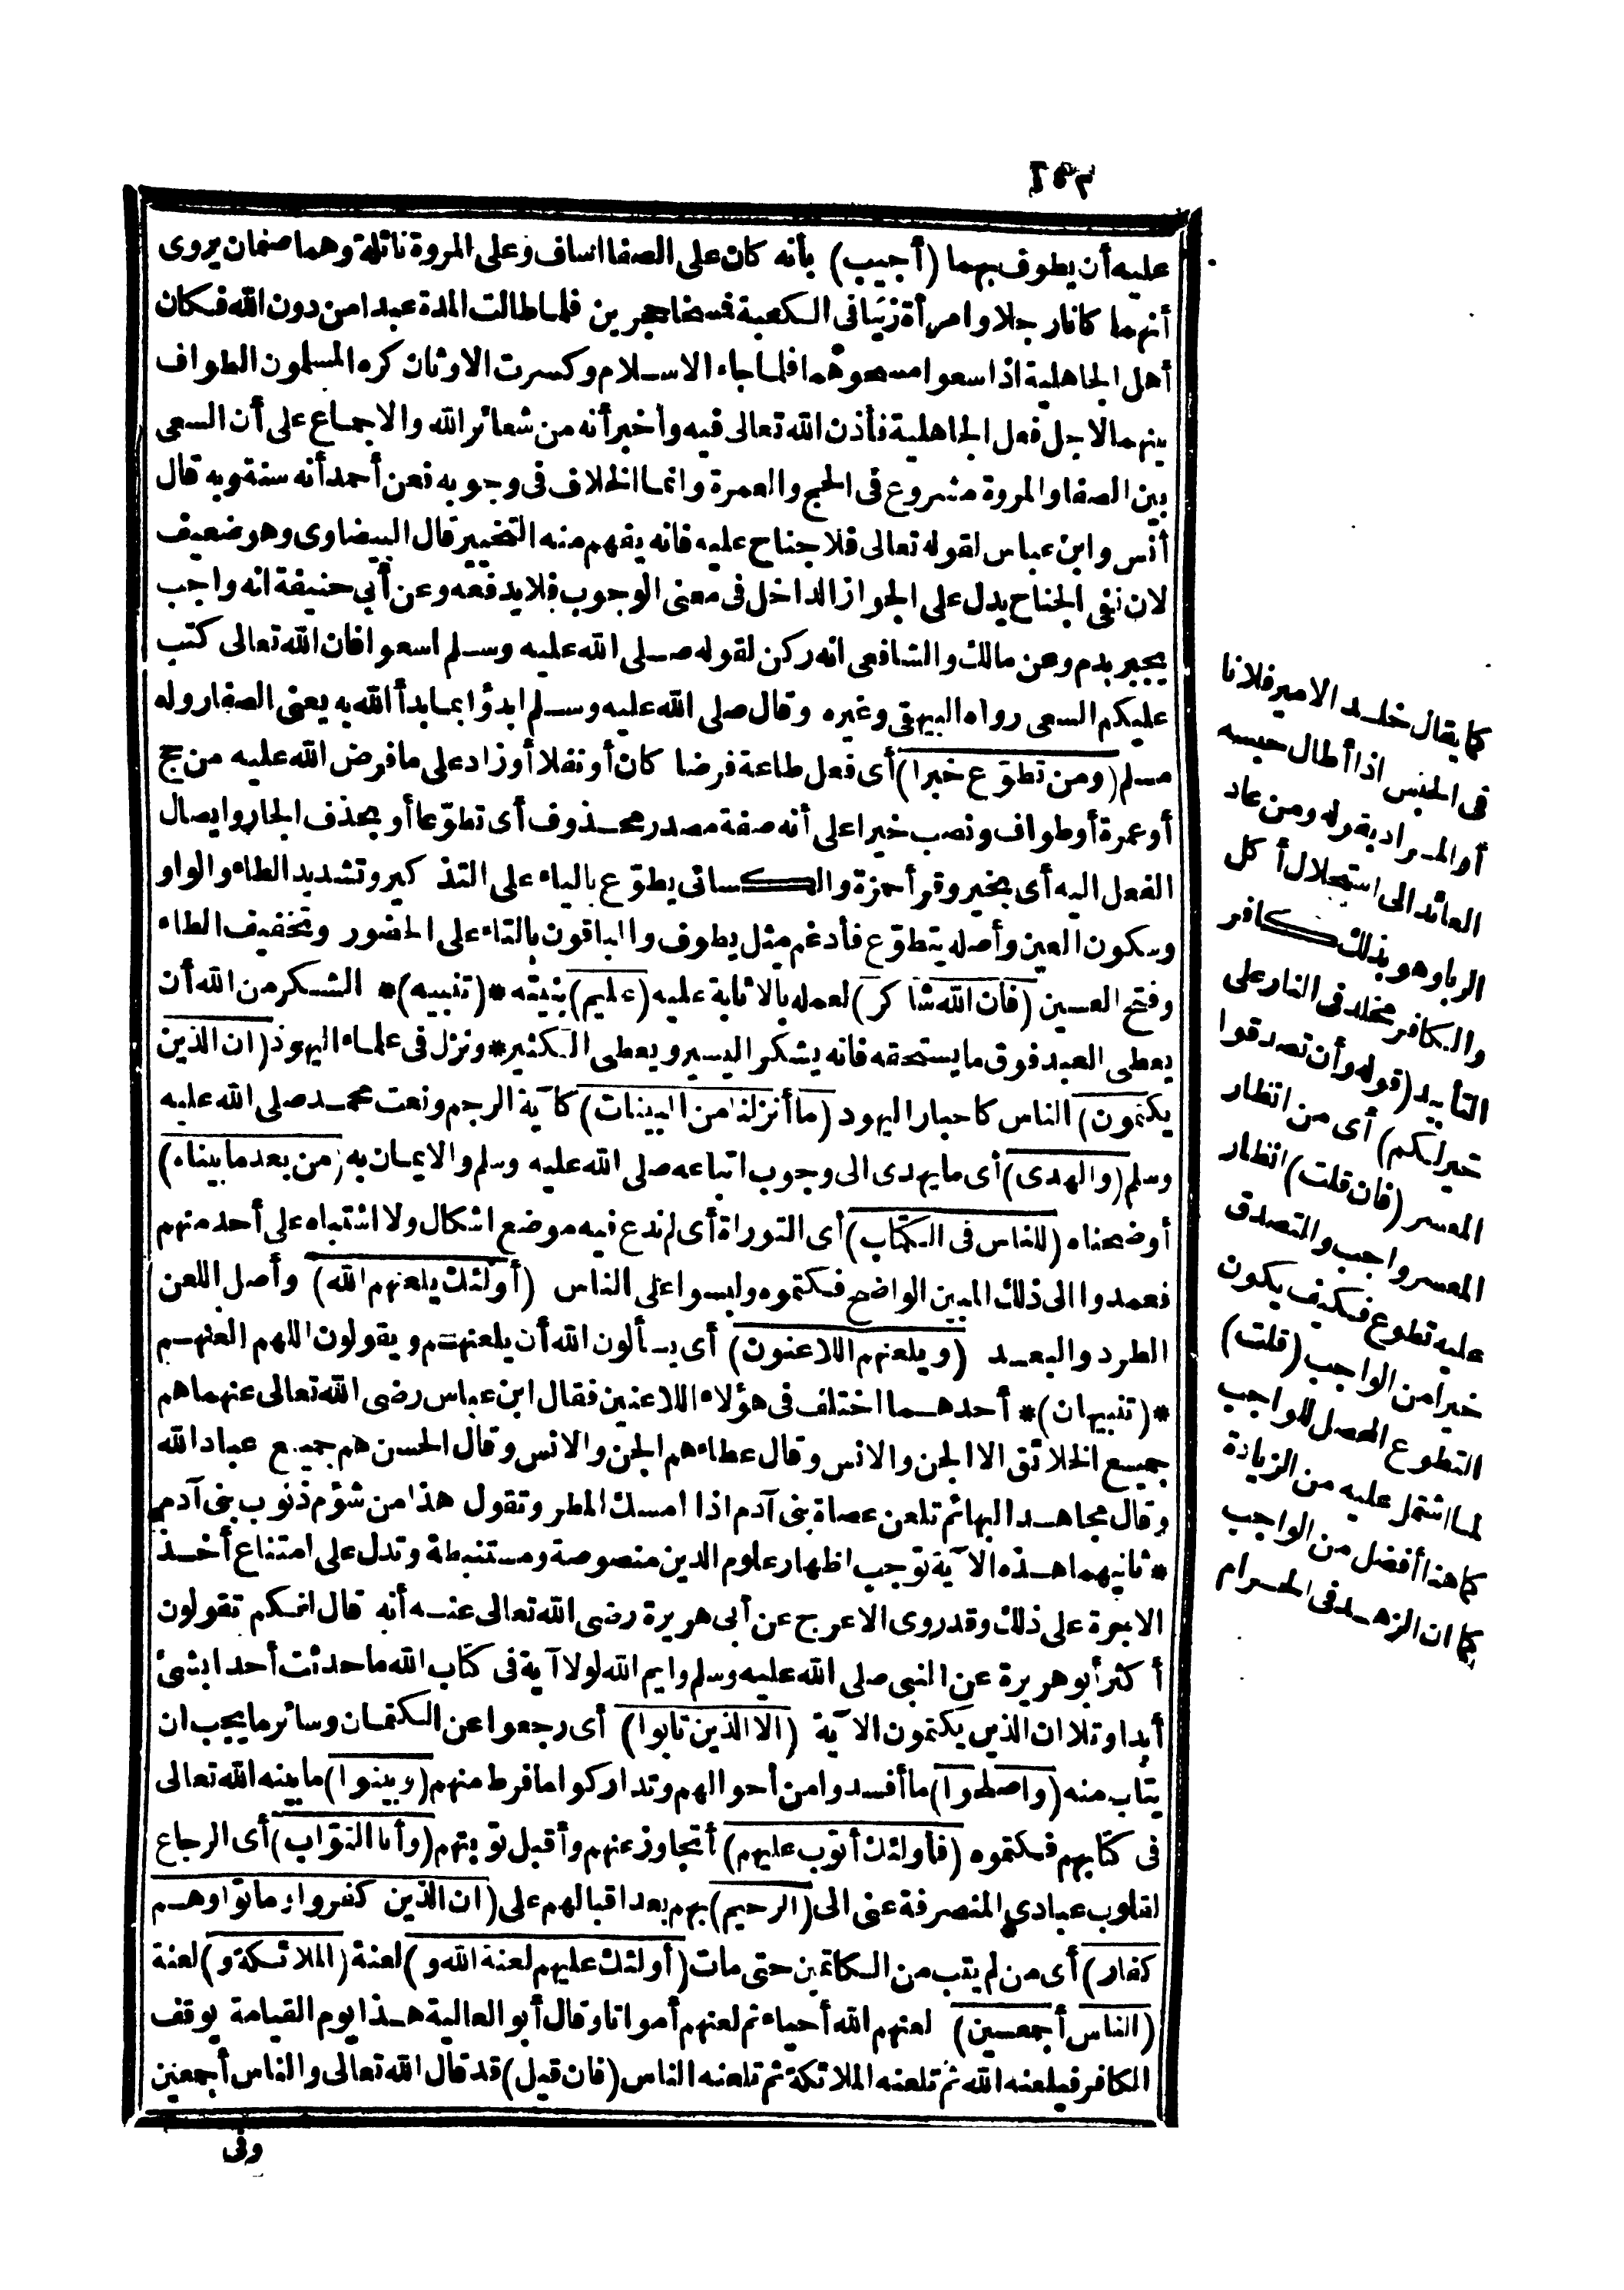 عليه أن يطوف بهما (أجيب) بأنه كان على الصفا اساف وعلى المروة نائلة وهما صنمان يروى
أنهما كانا رجلا وامرأة زنيا فى الكعبة فمسخا حجرين فلما طالت المدة عبدا من دون الله فكان
أهل الجاهلية اذا سعوا مسحوهما فلما جاء الاسلام وكسرت الاوثان كره المسلمون الطواف
بينهما لاجل فعل الجاهلية فأذن الله تعالى فيه وأخبر أنه من شعائر الله والاجماع على أن السعى
بين الصفا والمروة مشروع فى الحج والعمرة وانما الخلاف فى وجوبه فعن أحمد أنه سنة وبه قال
أنس وابن عباس لقوله تعالى فلا جناح عليه فانه يفهم منه التخيير قال البيضاوى وهو ضعيف
لان نفى الجناح يدل على الجواز الداخل فى معنى الوجوب فلا يدفعه وعن أبي حنيفة انه واجب
يجبر بدم وعن مالك والشافعى انه ركن لقوله صلى الله عليه وسلم اسعوا فان الله تعالى كتب
عليكم السعى رواه البيهقى وغيره وقال صلى الله عليه وسلم ابدؤا بما بدأ الله به يعنى الصفا رواه
مسلم (ومن تطوّع خيرا) أى فعل طاعة فرضا كان أو نفلا أو زاد على ما فرض الله عليه من حج
أو عمرة أو طواف ونصب خيرا على أنه صفة مصدر محذوف أى تطوّعا أو بحذف الجار وايصال
الفعل اليه أى بخير وقرأ حمزة والكسائى يطوّع بالياء على التذكير وتشديد الطاء والواو
وسكون العين وأصله يتطوّع فأدغم مثل يطوف والباقون بالتاء على الحضور وتخفيف الطاء
وفتح العين (فان الله شاكر) لعمله بالاثابة عليه (عليم) بنيته *(تنبيه)* الشكر من الله أن
يعطى العبد فوق ما يستحقه فانه يشكر اليسير ويعطى الكثير * ونزل فى علماء اليهود (ان الذين
يكتمون) الناس كاحبار اليهود (ما أنزلنا من البينات) كآية الرجم ونعت محمد صلى الله عليه
وسلم (والهدى) أى ما يهدى الى وجوب اتباعه صلى الله عليه وسلم والايمان به (من بعد ما بيناه)
أوضحناه (للناس فى الكتاب) أى التوراة أى لم ندع فيه موضع اشكال ولا اشتباه على أحد منهم
فعمدوا الى ذلك المبين الواضح فكتموه ولبسوا على الناس (أولئك يلعنهم الله) وأصل اللعن
الطرد والبعد (ويلعنهم اللاعنون) أى يسألون الله أن يلعنهم ويقولون اللهم العنهم
*(تنبيهان)* أحدهما اختلف فى هؤلاء اللاعنين فقال ابن عباس رضى الله تعالى عنهما هم
جميع الخلائق الا الجن والانس وقال عطاء هم الجن والانس وقال الحسن هم جميع عباد الله
وقال مجاهد البهائم تلعن عصاة بنى آدم اذا امسك المطر وتقول هذا من شؤم ذنوب بنى آدم
* ثانيهما هذه الآية توجب اظهار علوم الدين منصوصة ومستنبطة وتدل على امتناع أخذ
الاجرة على ذلك وقد روى الاعرج عن أبى هريرة رضى الله تعالى عنه أنه قال انكم تقولون
أكثر أبو هريرة عن النبى صلى الله عليه وسلم وايم الله لولا آية فى كتاب الله ما حدثت أحدا بشئ
أبدا وتلا ان الذين يكتمون الآية (الا الذين تابوا) أى رجعوا عن الكتمان وسائر ما يجب ان
يتاب منه (واصلحوا) ما أفسدوا من أحوالهم وتداركوا ما فرط منهم (وبينوا) ما بينه الله تعالى
فى كتابهم فكتموه (فأولئك أتوب عليهم) أتجاوز عنهم وأقبل توبتهم (وأنا التوّاب) أى الرجاع
لقلوب عبادي المنصرفة عنى الى (الرحيم) بهم بعد اقبالهم على (ان الذين كفروا وماتوا وهم
كفار) أى من لم يتب من الكاتمين حتى مات (أولئك عليهم لعنة الله و) لعنة (الملائكة و) لعنة
(الناس أجمعين) لعنهم الله أحياء ثم لعنهم أمواتا وقال أبو العالية هذا يوم القيامة يوقف
الكافر فيلعنه الله ثم تلعنه الملائكة ثم تلعنه الناس (فان قيل) قد قال الله تعالى والناس أجمعين
وفى
كما يقال خلد الامير فلانا
فى الحبس اذا أطال حبسه
أو المراد بقوله ومن عاد
العائد الى استحلال أكل
الربا وهو بذلك كافر
والكافر مخلد فى النار على
التأبيد (قوله وأن تصدقوا
خير لكم) أى من انظار
المعسر (فان قلت) انظار
المعسر واجب والتصدق
عليه تطوع فكيف يكون
خيرا من الواجب (قلت)
التطوع المحصل للواجب
لما اشتمل عليه من الزيادة
كما هنا أفضل من الواجب
كما ان الزهد فى الحرام